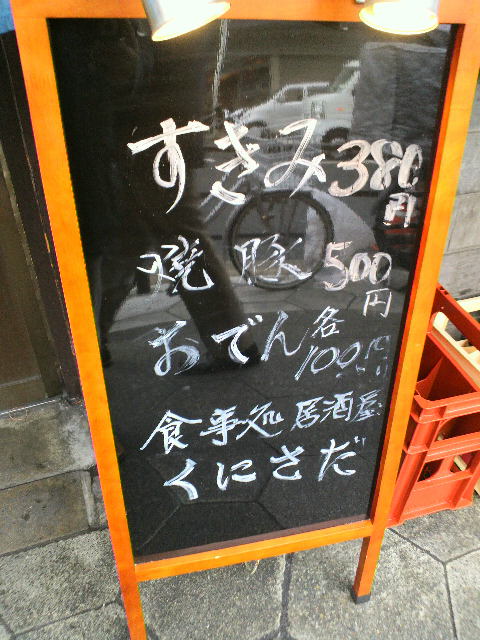 すきみ380円
焼豚500円
おでん各100円より
食事処居酒屋
くにさだ